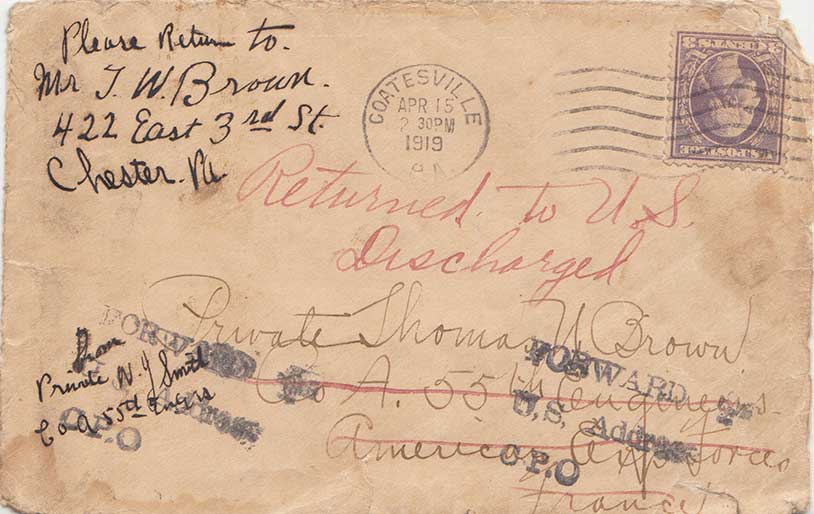 Please Return to.
Mr T. W. Brown.
422 East 3rd St.
Chester. Pa
COATESVILLE
APR 15
2 30PM
1919
PA.
Returned to U.S.
Discharged
Private Thomas W Brown
Co A. 55th Engineers.
American Exp Forces
France
FORWARD
Address
C.P.O
From
Private W. J Smith
Co A 55th Engrs
FORWARD
U.S. Address
C.P.O